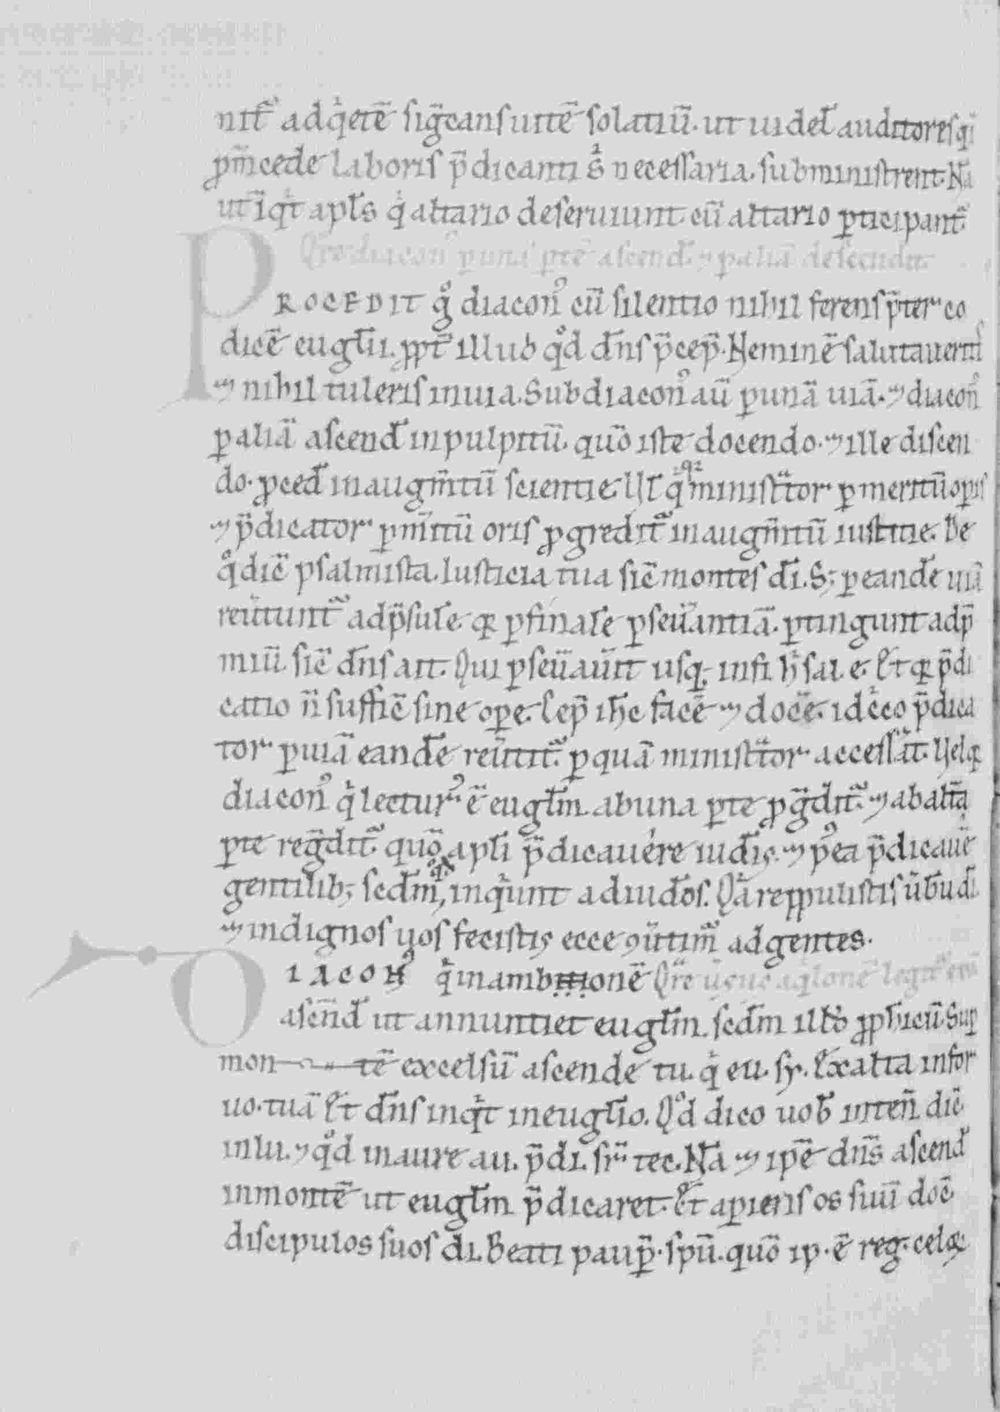 nit᷑ adq̇rete᷑ sig̅cans uite᷑ solatiu̅. ut uidel̅ auditores qi̅
ꝓm̅cede laboris p̅dicanti s̅ necessaria. subministrent. Na̅
ut i̅qͥt apl̅s qͥ altario deseruiunt. cu̅ altario ꝑticipant᷑.
Qͬe diacon᷒ ꝑ una̅ ꝑte̅ ascend̅. ⁊ ꝑ alia̅ descendit.
PROCEDIT g̊ diacon᷒ cu̅ silentio nihil ferens p̅ter co
dice̅ eugl̅ii. ꝓpt᷑ illud qd̊ dn̅s p̅cep̅. Nemine̅ salutaueritis
⁊ nihil tuleris in uia. Subdiacon᷒ au̅ ꝑ una̅ uia̅. ⁊ diacon᷒
ꝑ alia̅ ascend̅ in pulpitu̅. quo̅ iste docendo. ⁊ ille discen
do. ꝓced̅ in augm̅tu̅ scientie. Ul̅ qͥ ministͣtor ꝑ meritu̅ opis
⁊ p̅dicator ꝑ m̅itu̅ oris ꝓgredit᷑ in augm̅tu̅ iustitie. De
q̊ dic̅ psalmista. Iusticia tua sic̅ montes di̅. S; ꝑ eande̅ uia̅
reu̅tunt᷑ ad p̅sule̅. qꝛ ꝑ finale̅ ꝑseu̅antia̅. ꝑtingunt ad p̅
miu̅. sic̅ dn̅s ait. Qui ꝑseu̅au̅it usq; in fi. hͥ sal. e. Et qꝛ p̅di
catio n̅ suffic̅ sine oꝑe. cep̅ ihc̅ face̅ ⁊ doce̅. idcͥco p̅dica
tor ꝑ uia̅ eande̅ reu̅tit᷑. ꝑ qua̅ ministͣtor accessa̅t. Uel qꝛ
diacon᷒ qͥ lectur᷒ e̅ eugl̅m. ab una ꝑte ꝓgͣdit᷑. ⁊ ab alt̅a
ꝑte regͣdit᷑. quo̅ apl̅i p̅dicauere iud̅is. ⁊ p᷒ea p̅dicaue̅
gentilib; scd̅m qd̅, inqͥunt ad iud̅os. Qͣ reppulistis u̅bu̅ di̅
⁊ indignos uos fecistis ecce ꝯu̅tim᷒ ad gentes.
DIACON᷒ qͥ in ambiione̅ Qͬe u̅sus aq̇lone̅ legit᷑ eu̅
ascn̅d ut annuntiet eugl̅m. scd̅m illd̅ ꝓph̅icu̅. Sup̅
mon te̅ excelsu̅ ascende tu. qͥ eu. sy. Exalta in for
uo. tua̅ Et dn̅s inqͥt in eugl̅io. Qd̊ dico uob̅ in ten̅. dic̅
in lu. ⁊ qd̊ in aure au. p̅di. sr̅ tec. Na̅ ⁊ ipe̅ dn̅s ascend̅
in monte̅ ut eugl̅m p̅dicaret. Et apiens os suu̅ doc̅
discipulos suos di. Beati pauꝑ. spu̅. quo̅ ip. e̅ reg. celoꝝ